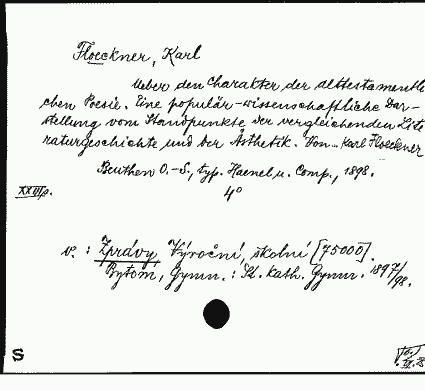 Floeckner, Karl
Ueber den Charakter der alttestamentli
chen Poesie. Eine populär-wissenschaftliche Dar-
stellung vom Standpunkte der vergleichenden Lite
raturgeschichte und der Ästhetik. Von... Karl Floeckner
Beuthen O.-S., typ. Haenel u. Comp., 1898.
XXVI/p. 4°
v.: Zprávy Výroční, školní [75000].
Bytom, Gymn.: St. kath. Gymn. 1897/98.
S